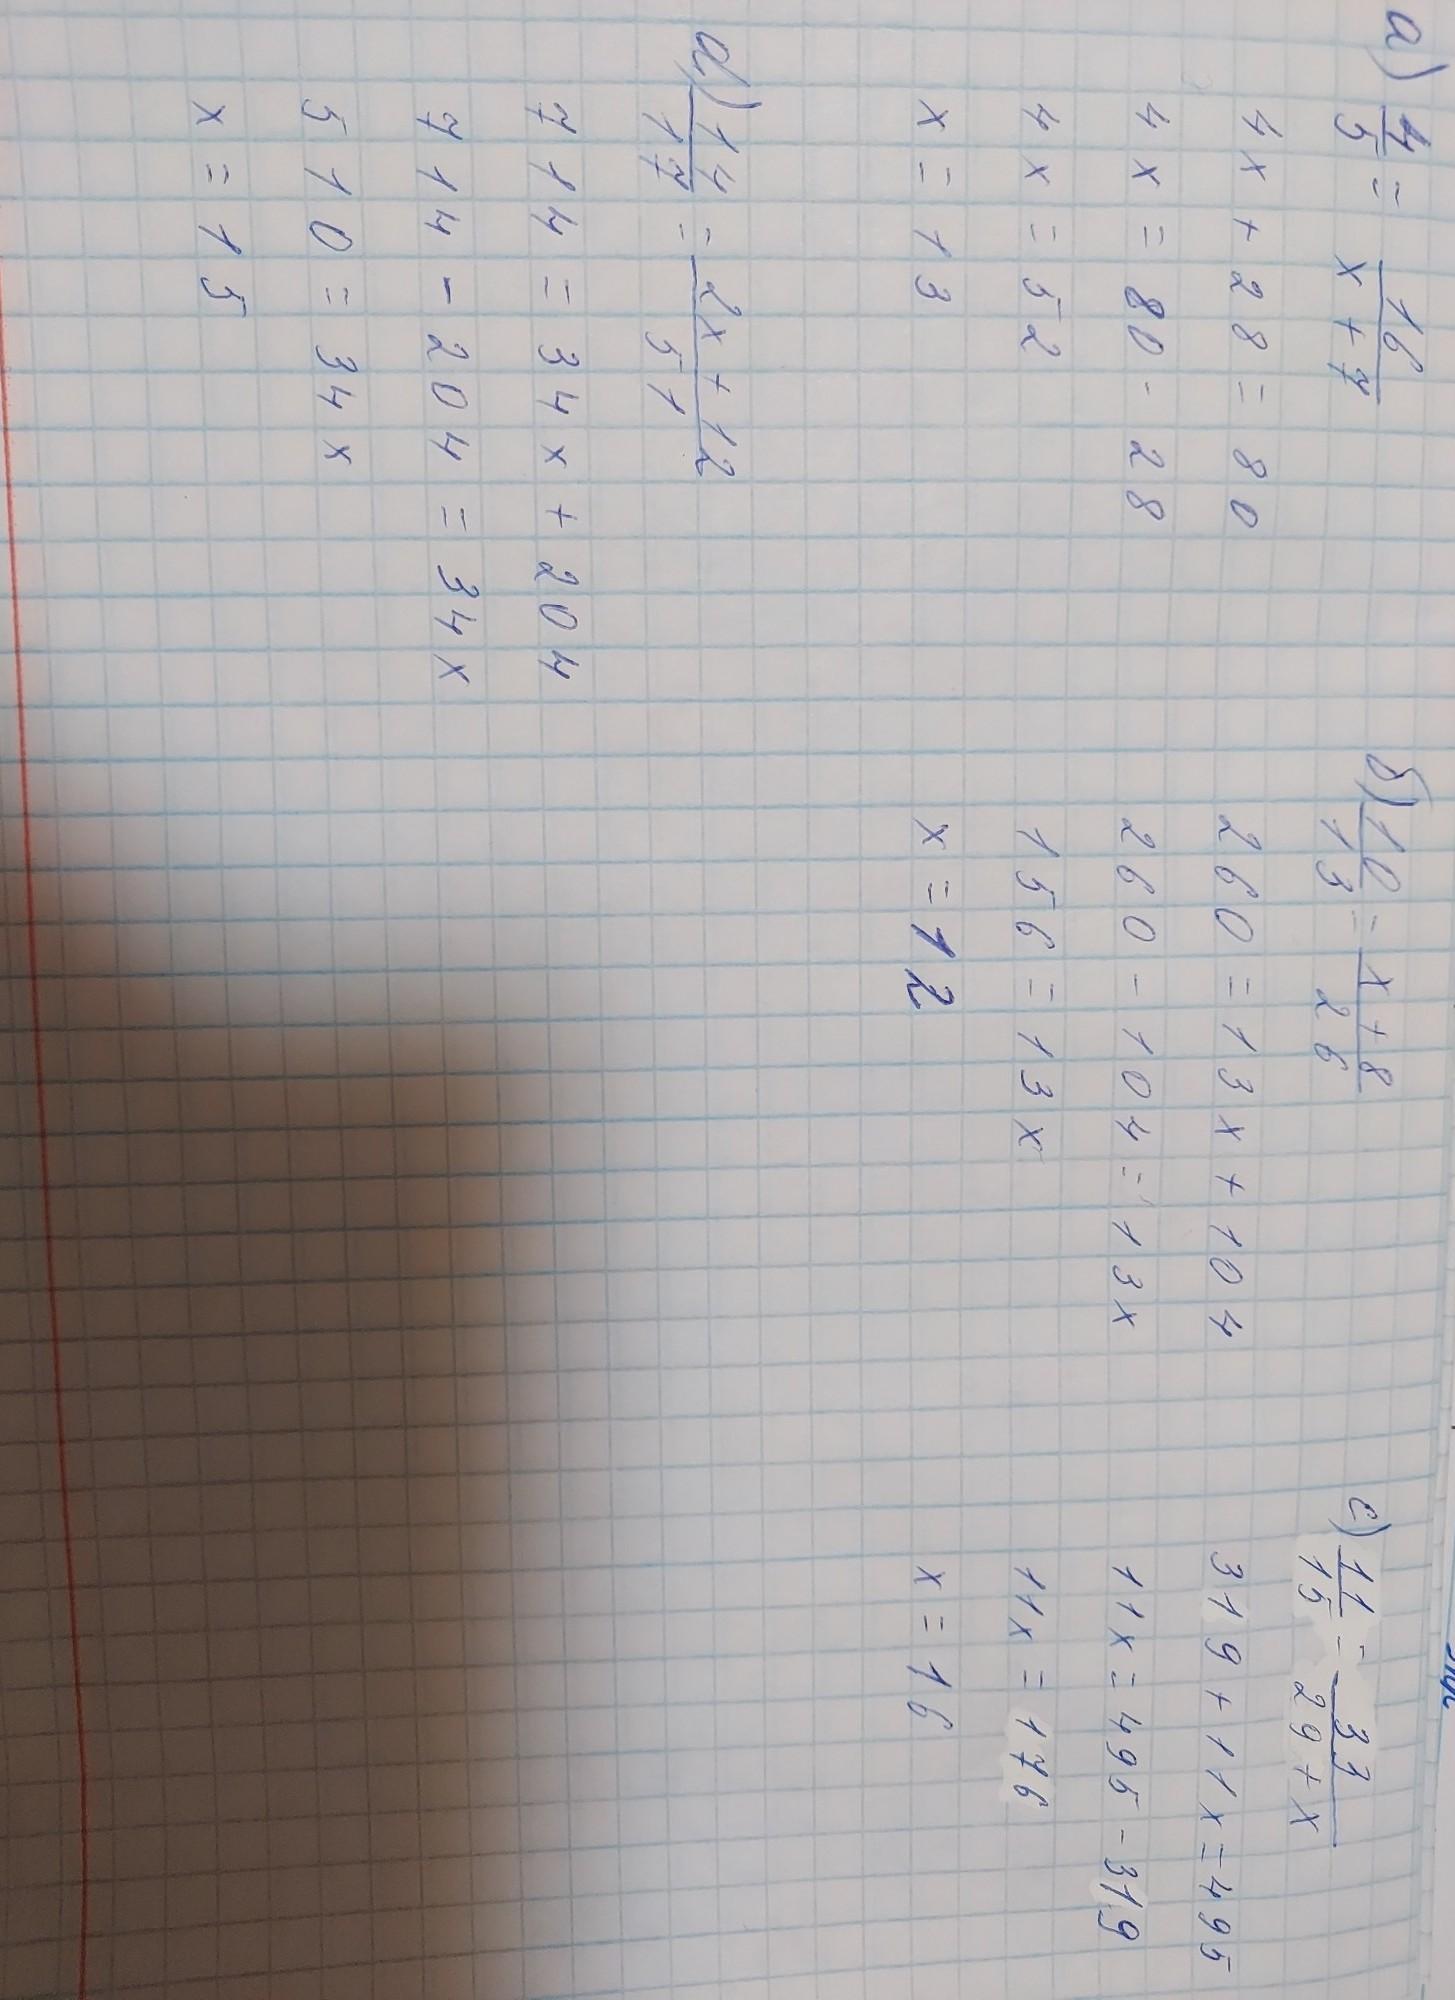 а) 4/5 = 16/x+7
4x + 28 = 80
4x = 80 - 28
4x = 52
x = 13
б) 10/13 = x+8/26
260 = 13x + 104
260 - 104 = 13x
156 = 13x
x = 12
с) 11/15 = 33/29+x
319 + 11x = 495
11x = 495 - 319
11x = 176
x = 16
d) 14/17 = 2x+12/51
714 = 34x + 204
714 - 204 = 34x
510 = 34x
x = 15